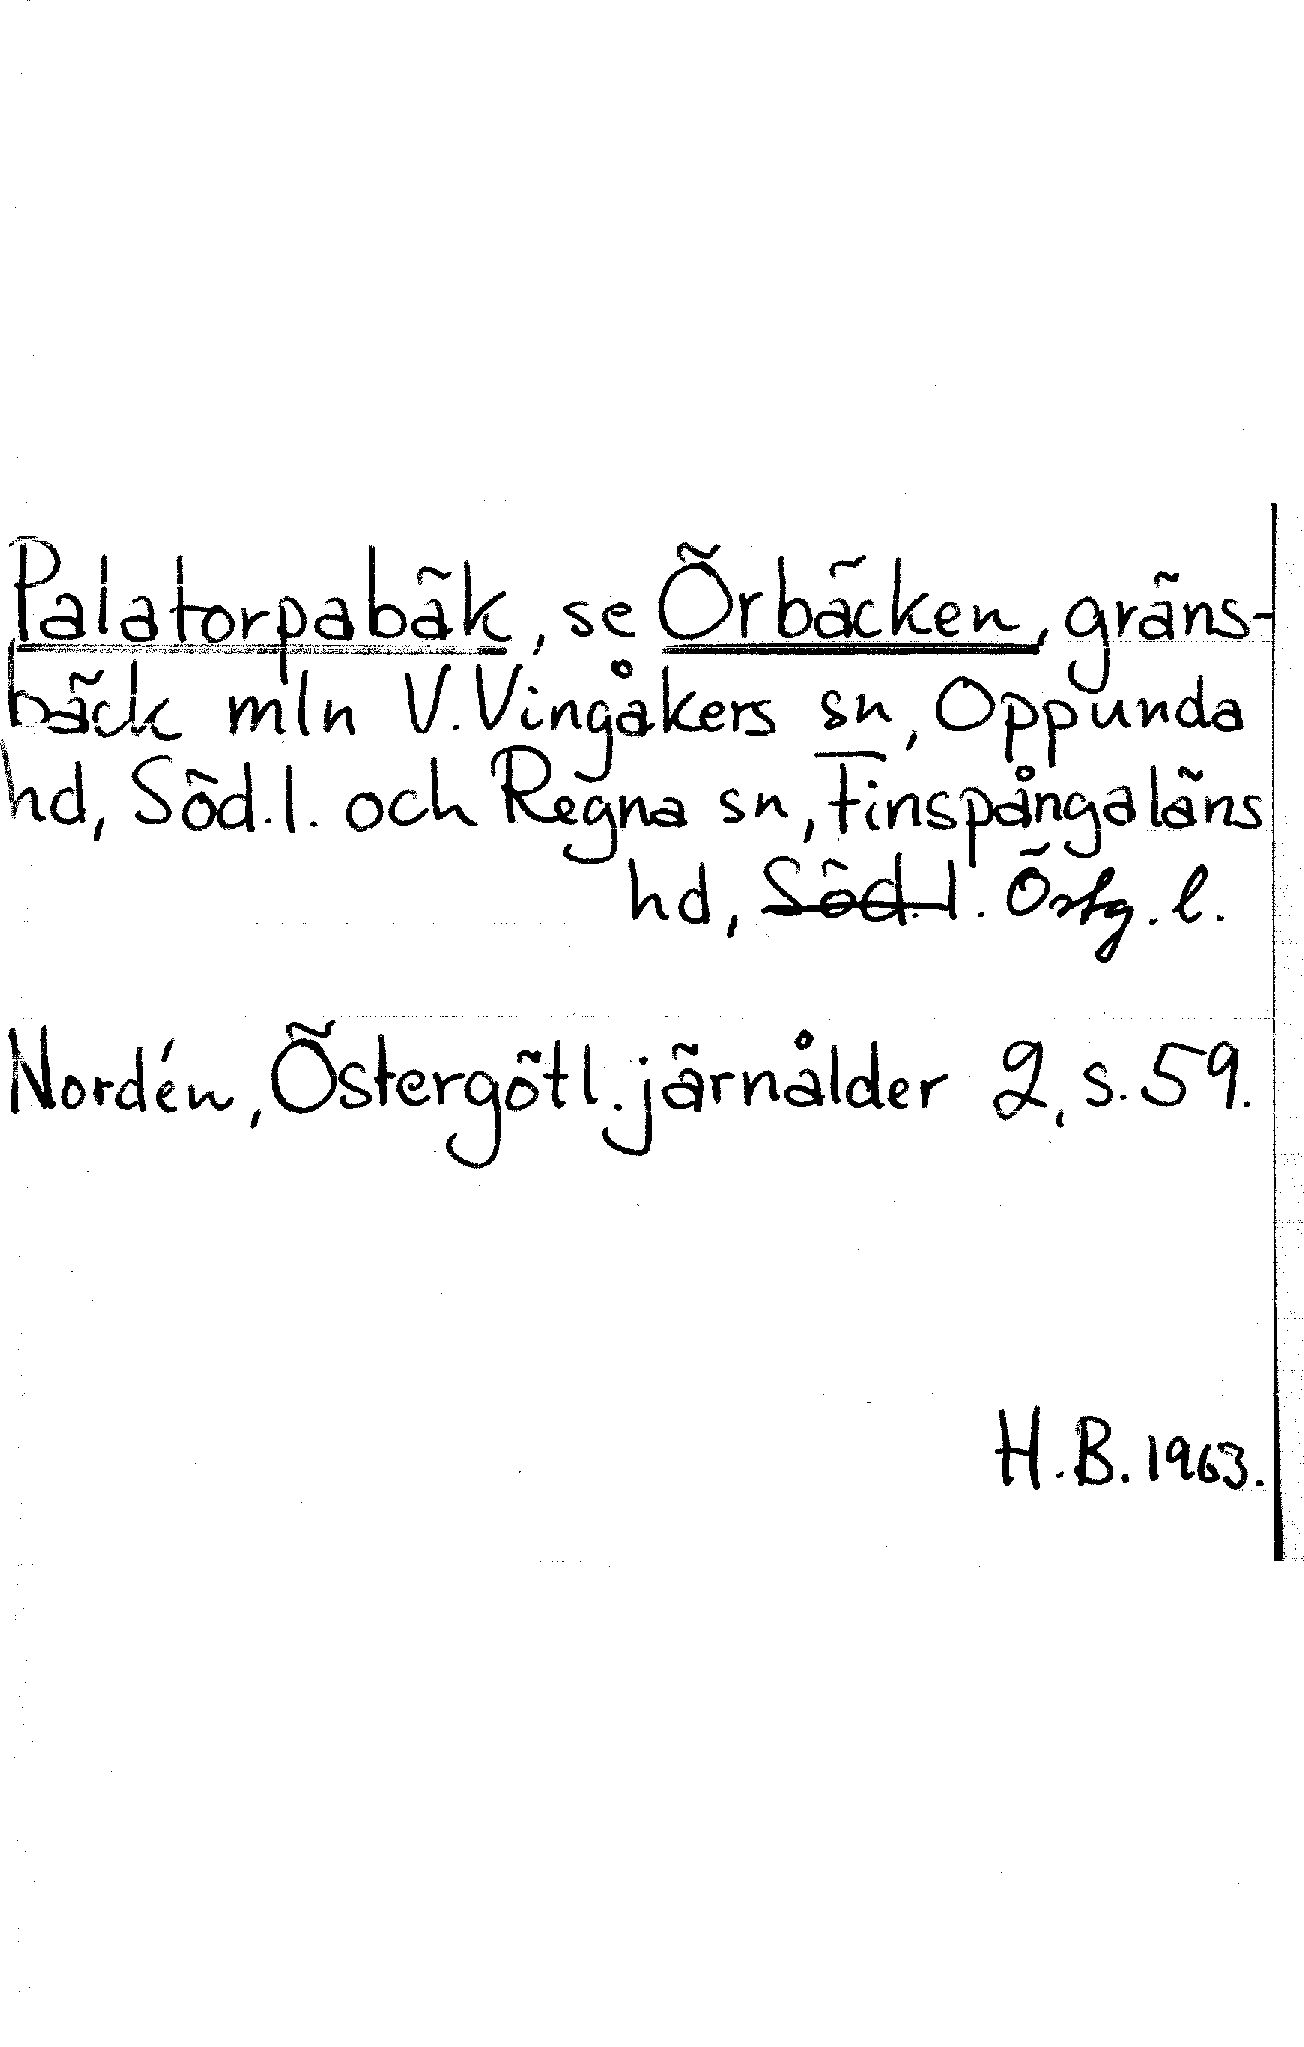 Palatorpabäk, se Örbäcken, gräns-
bäck mln V. Vingåkers sn, Oppunda
hd, Söd. l. och Regna sn, Finspångaläns
hd, Söd. l. Östg. l.
Nordén, Östergötl. järnålder 2, s. 59.
H. B. 1963.